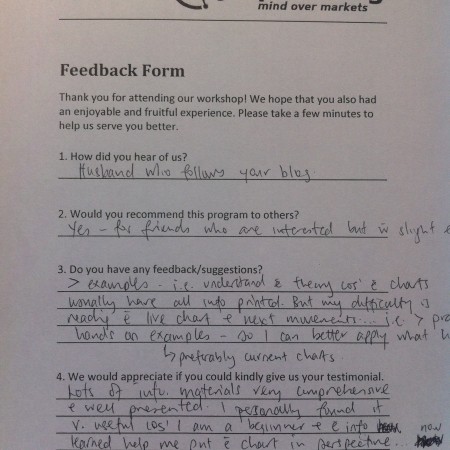 mind over markets
Feedback Form
Thank you for attending our workshop! We hope that you also had
an enjoyable and fruitful experience. Please take a few minutes to
help us serve you better.
1. How did you hear of us?
Husband who follows your blog.
2. Would you recommend this program to others?
Yes - for friends who are interested but w̄ slight
3. Do you have any feedback/suggestions?
> examples - i.e. understand ē theory cos' ē charts
usually have all info printed. But my difficulty is
reading ē live chart & next movements... i.e. >
hands on examples - so I can better apply what
↳ preferably current charts
4. We would appreciate if you could kindly give us your testimonial.
Lots of info. materials very comprehensive
& well presented. I personally found it
v. useful cos' I am a beginner & ē info now
learned help me put ē chart in perspective...